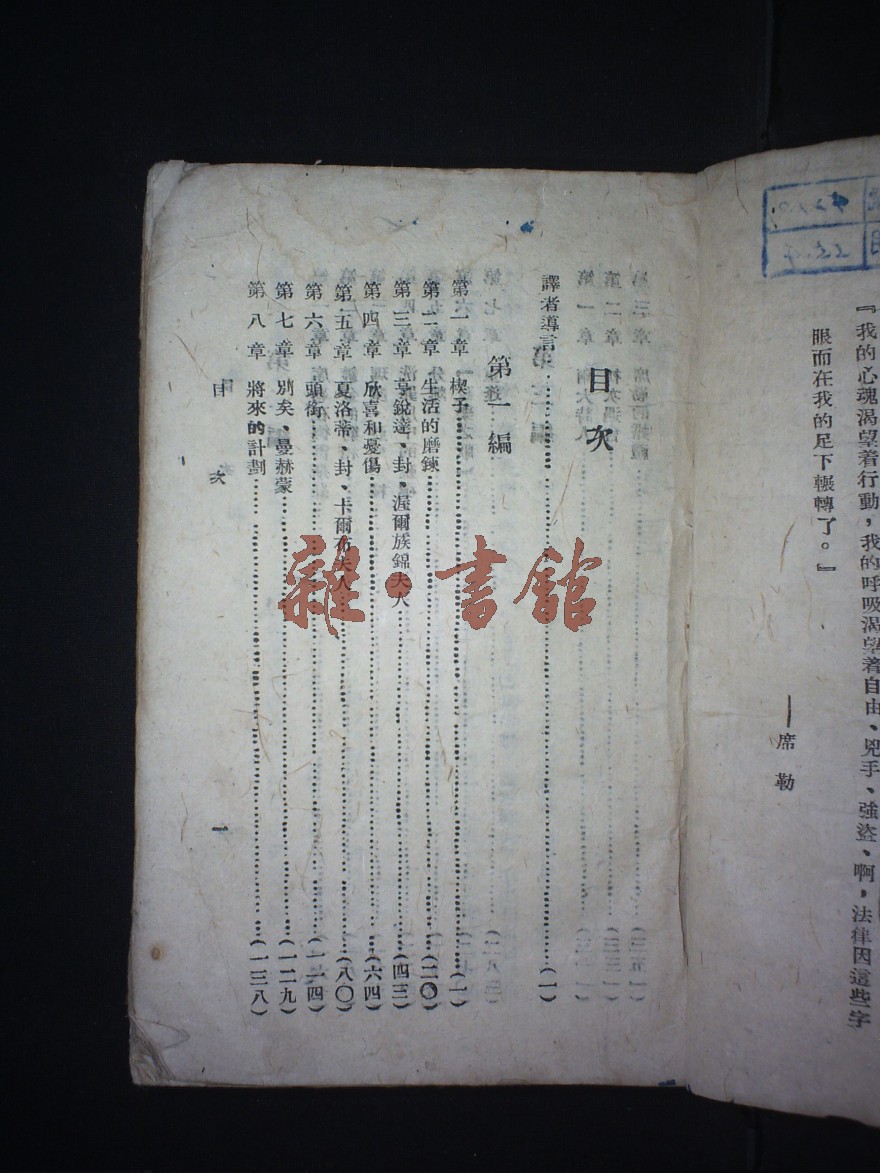 『我的心魂渴望着行動，我的呼吸渴望着自由、兇手、強盜、啊，法律因這些字
眼而在我的足下輾轉了。』
——席勒
目次
譯者導言……(一)
第一編
第一章 楔子……(一)
第二章 生活的磨鍊……(二〇)
第三章 亨銳達、封、渥爾族錦夫人……(四三)
第四章 欣喜和憂傷……(六四)
第五章 夏洛蒂、封、卡爾布夫人……(八〇)
第六章 頭銜……(一一四)
第七章 別矣、曼赫蒙……(一二九)
第八章 將來的計劃……(一三八)
目次
一
雜·書館